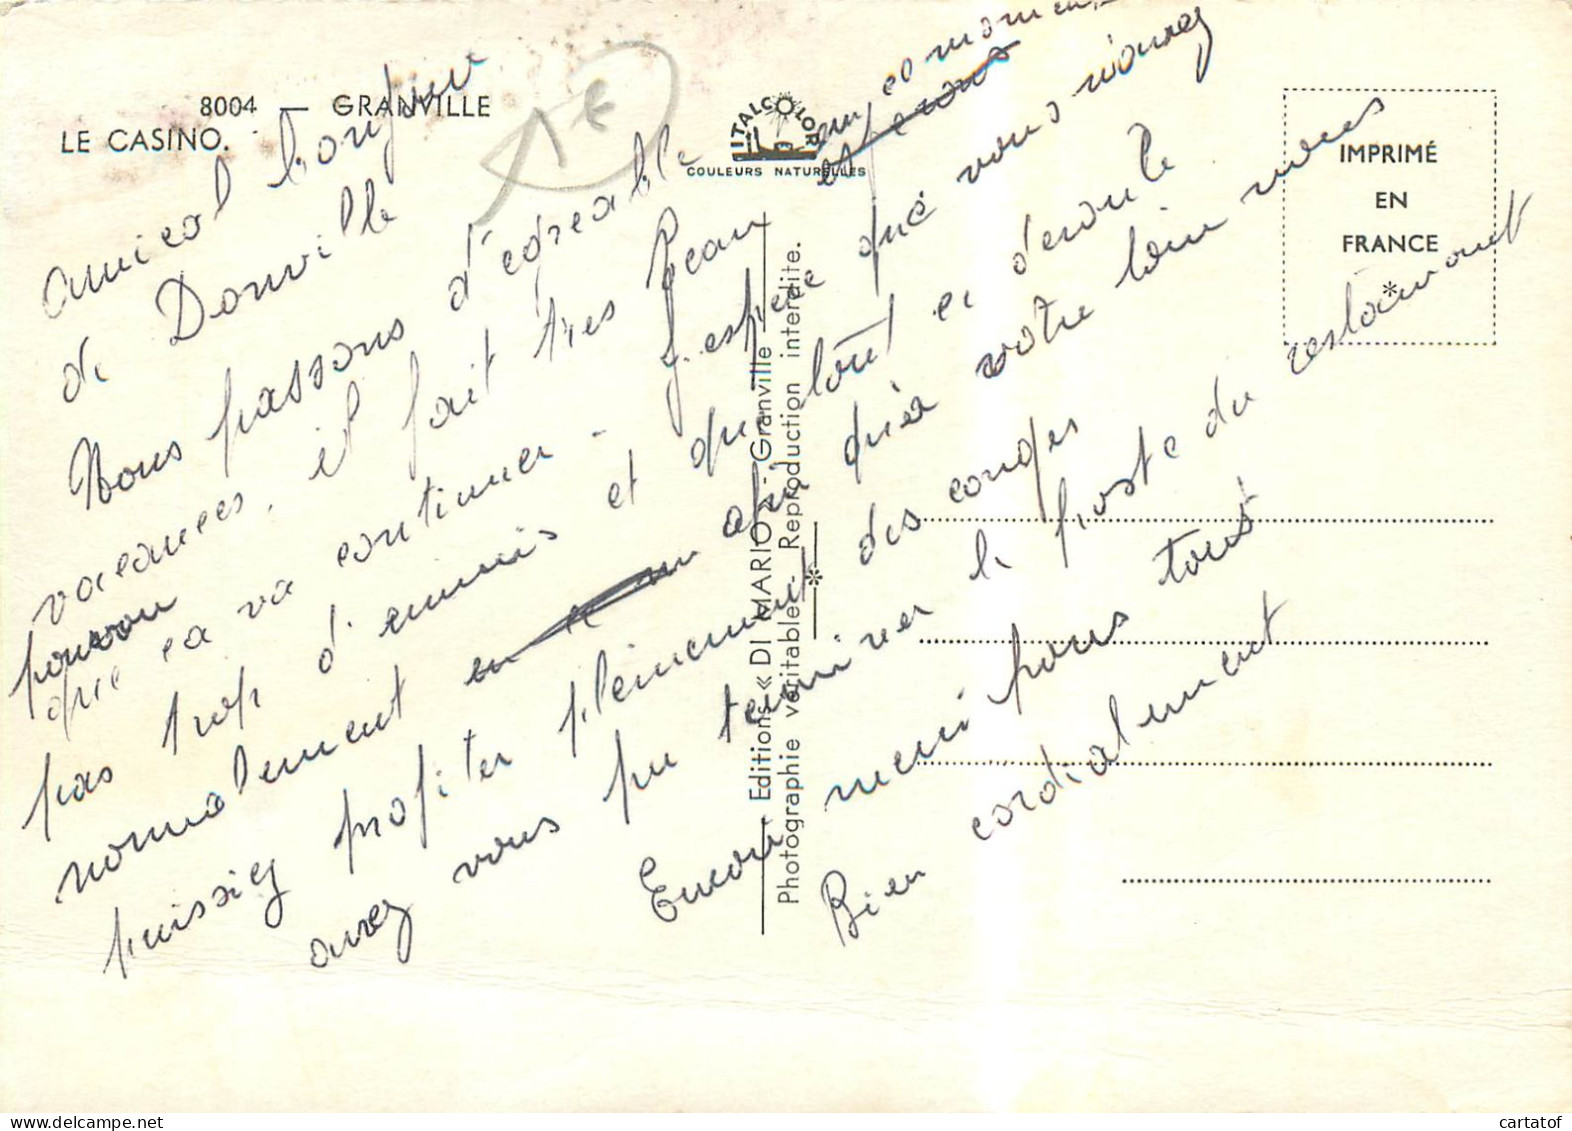 8004 — GRANVILLE
LE CASINO.
1€
ITALCOLOR
COULEURS NATURELLES
IMPRIMÉ
EN
FRANCE
*
Editions « DI MARIO » - Granville
Photographie véritable - Reproduction interdite.
*
Amical bonjour
de Donville
Nous passons d'agréable
vacances, il fait très beau et
pourvu
que ça va continuer. J'espère que vous n'aurez
pas trop d'ennuis et que tout ce déroule
normalement afin que
puissiez profiter pleinement des congés
avez vous pu terminer le poste du restaurant
Encore merci pour tout
Bien cordialement
cartatof